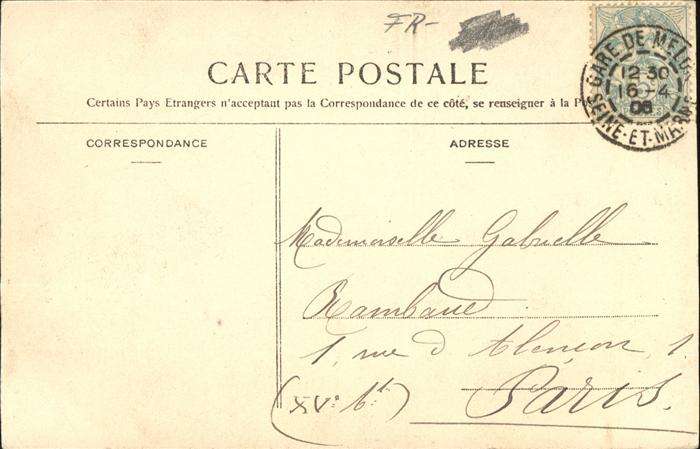 FR-
CARTE POSTALE
Certains Pays Etrangers n'acceptant pas la Correspondance de ce côté, se renseigner à la Po
CORRESPONDANCE
ADRESSE
GARE DE MELU
12-30
16-4
06
SEINE-ET-MARNE
Mademoiselle Gabrielle
Rambaud
1, rue d'Alençon, 1.
(XVe Art)
Paris.